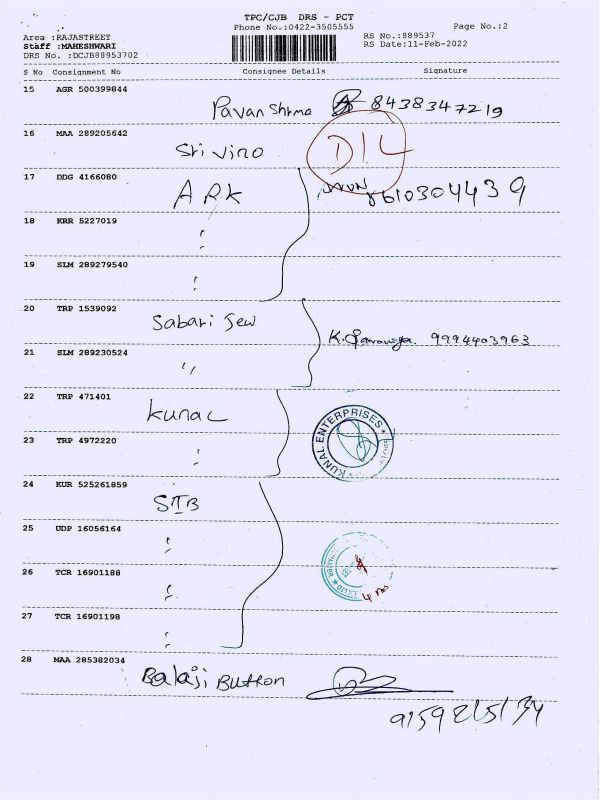 TPC/CJB DRS - PCT
Phone No.:0422-3505555
Page No.:2
Area :RAJASTREET
Staff :MAHESHWARI
DRS No. :DCJB88953702
RS No.:889537
RS Date:11-Feb-2022
S No Consignment No Consignee Details Signature
15 AGR 500399844
Pavan Shrma 8438347219
16 MAA 289205642
Sri vino D/L
17 DDG 4166080
ARK 8610304439
18 KRR 5227019
"
19 SLM 289279540
"
20 TRP 1539092
Sabari Sew K. 9994403963
21 SLM 289230524
"
22 TRP 471401
Kunal
KUNAL ENTERPRISES
23 TRP 4972220
"
24 KUR 525261859
STB
25 UDP 16056164
"
26 TCR 16901188
"
4 nos
27 TCR 16901198
"
28 MAA 285382034
Balaji Button
9159215134